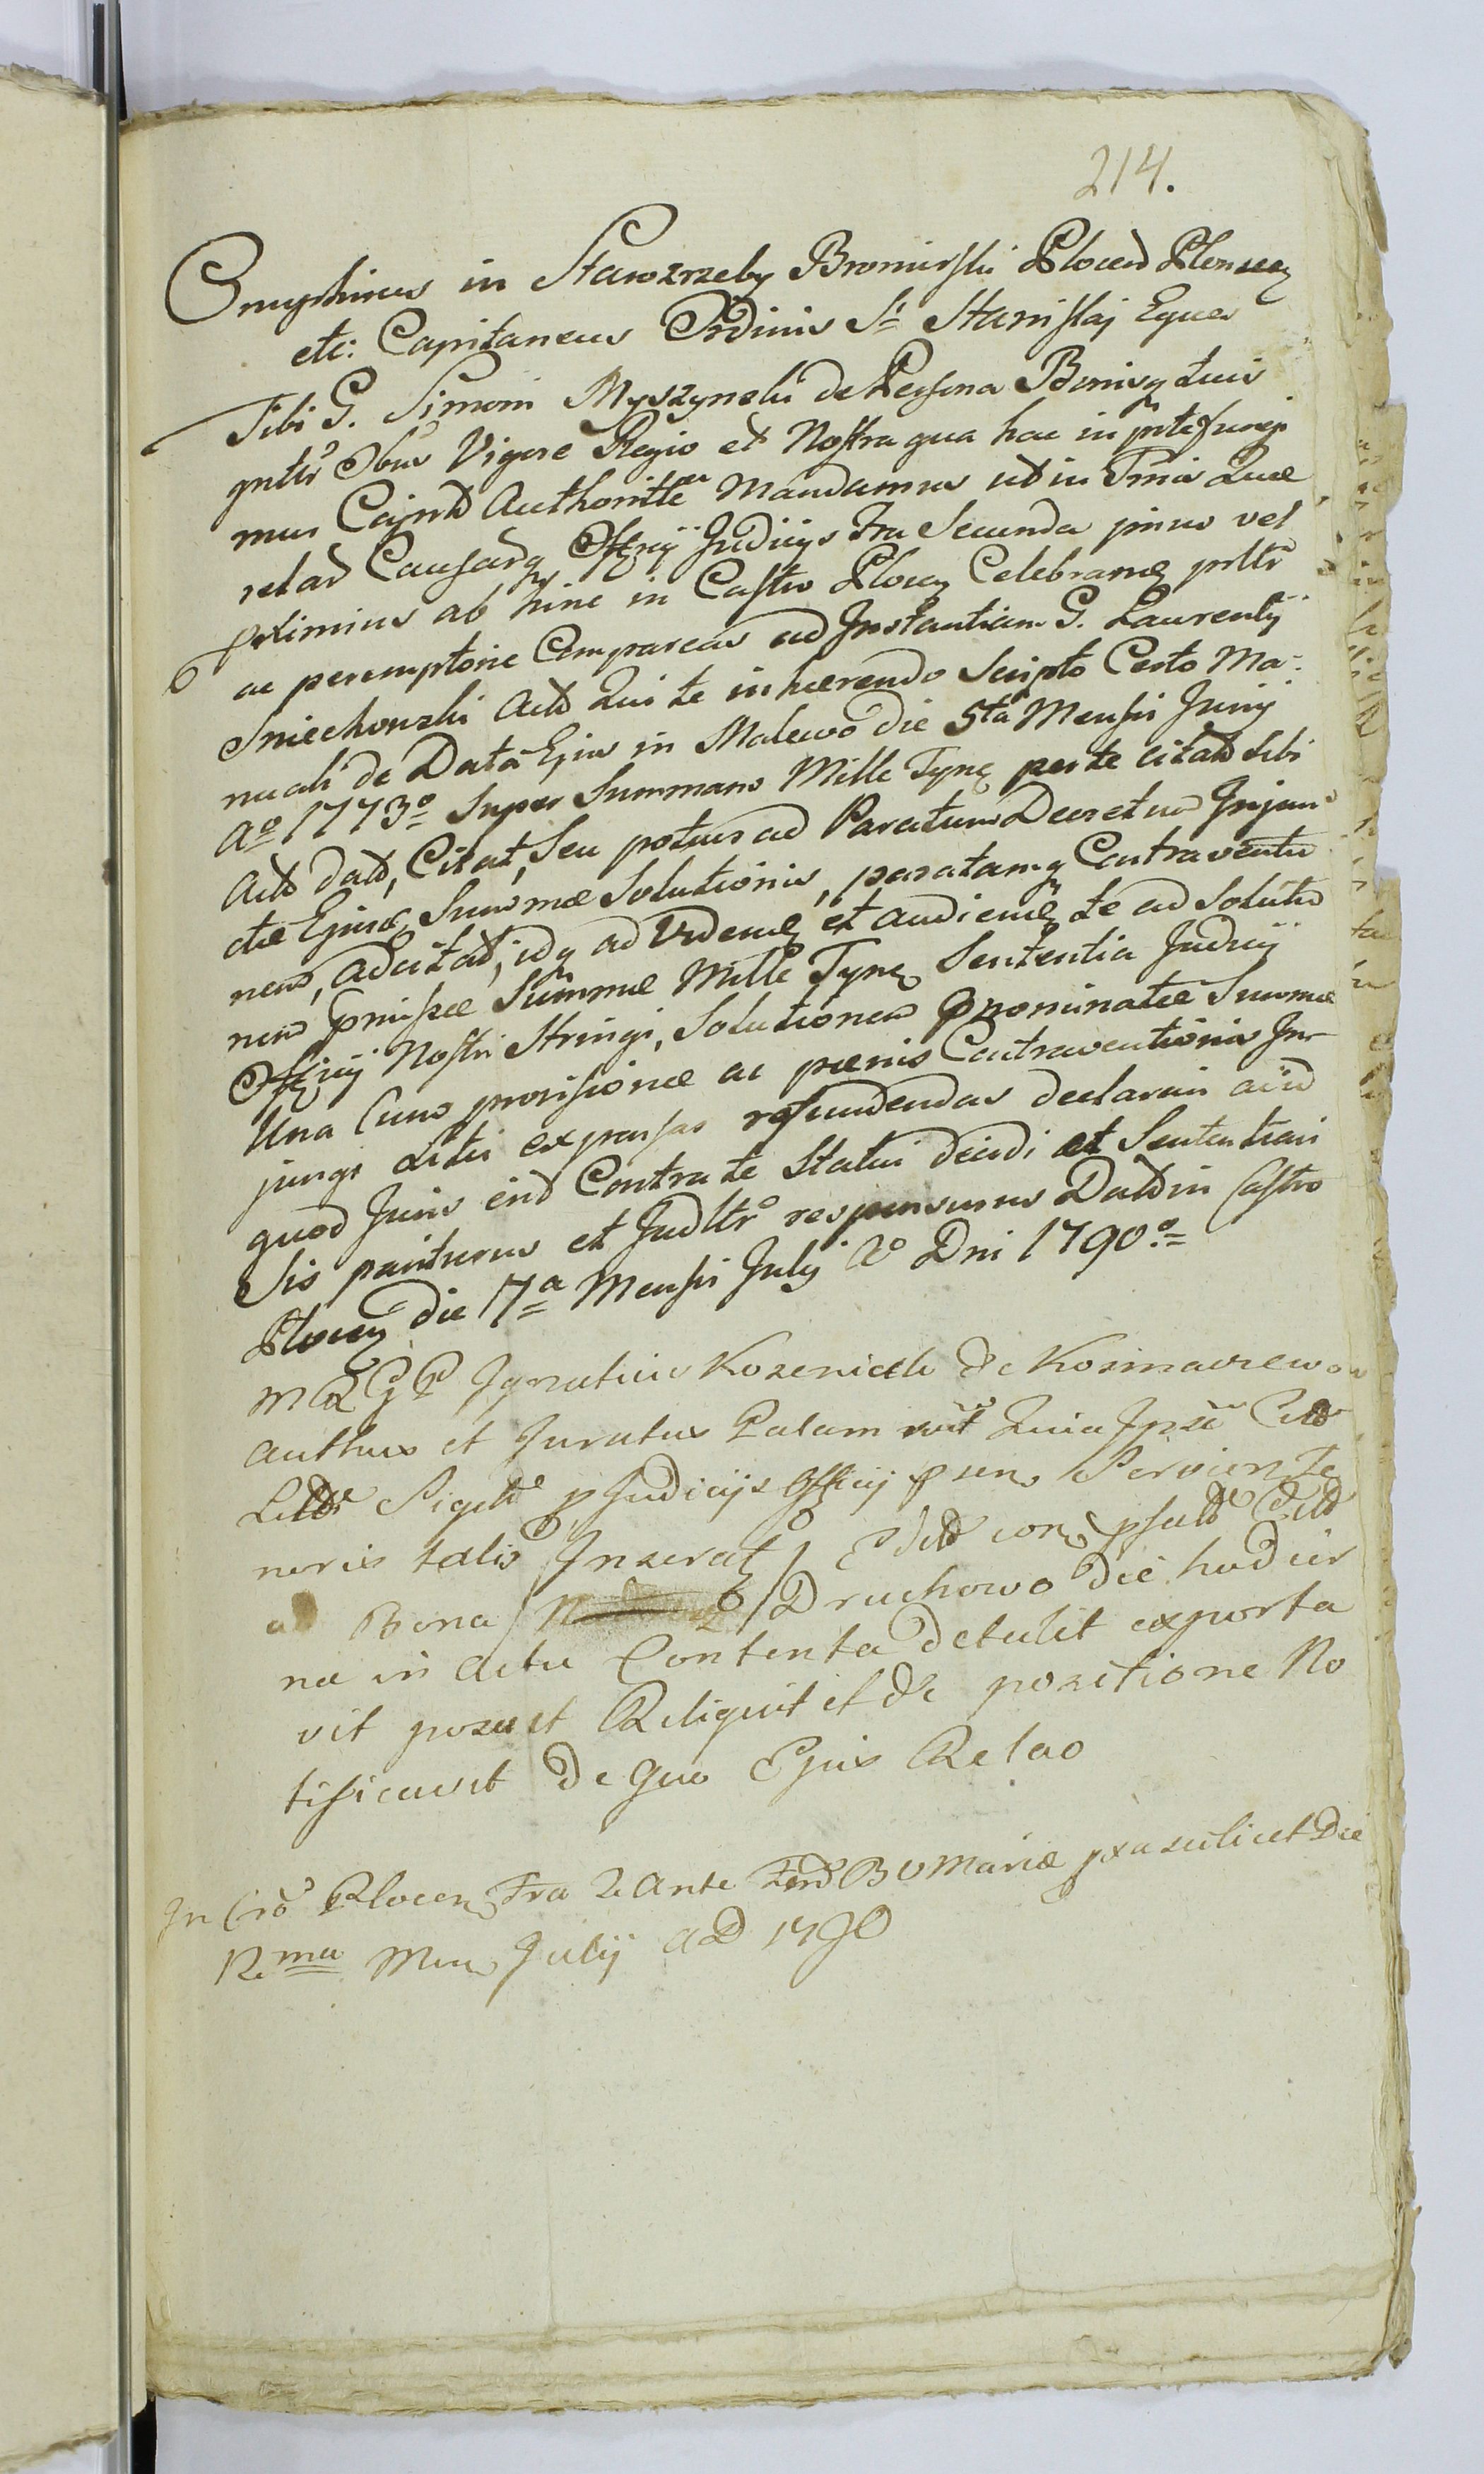 214.
Onuphrius in Starozrzeby Bromirski Plocen Plonscen
etc: Capitaneus Ordinis Sti Stanislaj Eques
Tibi G. Simoni Myszynski de Persona Bonisq tuis
gnltr Obus Vigore Regio et Nostra qua hac in pte fungi
mur Capnli Authoritte Mandamus ut in Tmis Que
relar Causarq Officij Judicijs Fra Secunda pimo vel
proximius ab hinc in Castro Plocen Celebran pnltr
ac peremptorie Compareas ad Instantiam G. Laurentij
Smiechowski Act Qui te inhaerendo Scripto Certo Ma-
nuali de Data Ejus in Malewo die 5ta Mensis Junij
Ao 1773o Super Summam Mille Tynf per te citat Sibi
Act dat, Citat, Seu potius ad Paratum Decretum Injun
ctae Ejusd Summae Solutionis, paratamq Contraventio
nem, adcitat, idq ad Videnm et audienm te ad Solutio
nem pmissae Summae Mille Tynf Sententia Judicij
Officij Nostri Stringi, Solutionem pnominatae Summae
Una Cum provisione ac paenis Contraventionis In-
jungi Litis expensas refundendas declarari aliud
quod Juris erit Contra te Statui decidi et Sententiari
Sis pariturus et Judltr responsurus Dat in Castro
Plocen die 7a Mensis Julij Ao Dni 1790o
M R G P Ignatius Kozenicki de Kosmaczewo
Authus et Juratus Palam rcit Quia Ipse Citt
Littr Sigilt p Judicijs Officij psen Servien Te
noris talis Inserat Edit con psult Citt
ad Bona Druchowo die hodier
na in Actu Contenta detulit exporta
vit posuit Reliquit et de positione No
tificavit de quo Ejus Relao
In Cro Plocen Fra 2 Ante Fest B V Mariae pxa scilicet Die
12ma Men Julij AD 1790